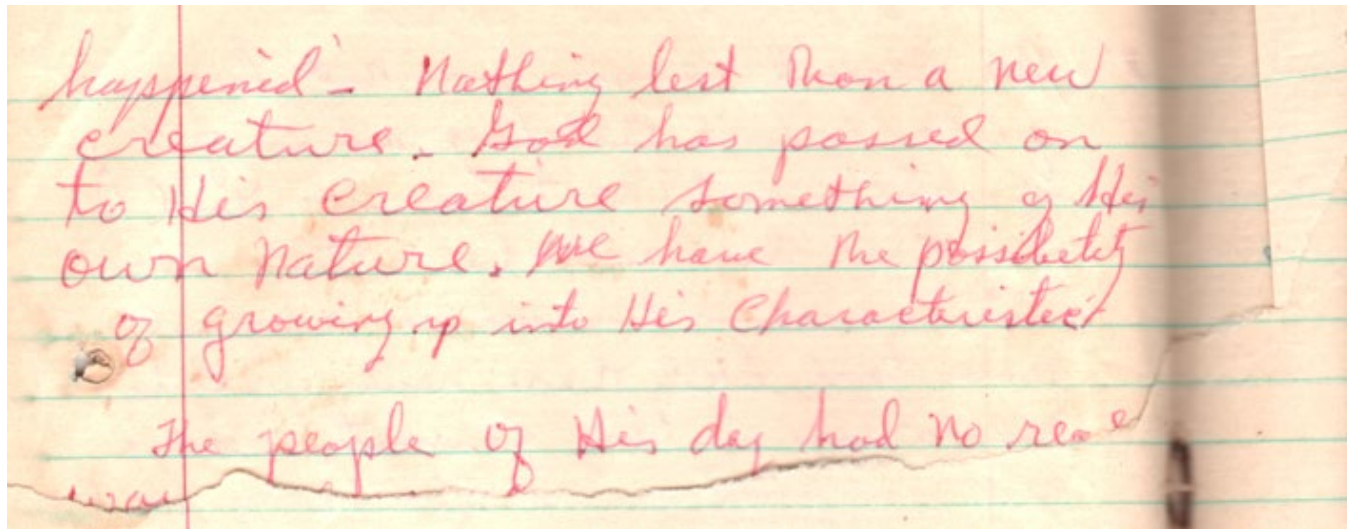 happened - Nothing lest than a new
creature. God has passed on
to His creature something of His
own nature. We have the possibility
of growing up into His Characteristics
The people of His day had no